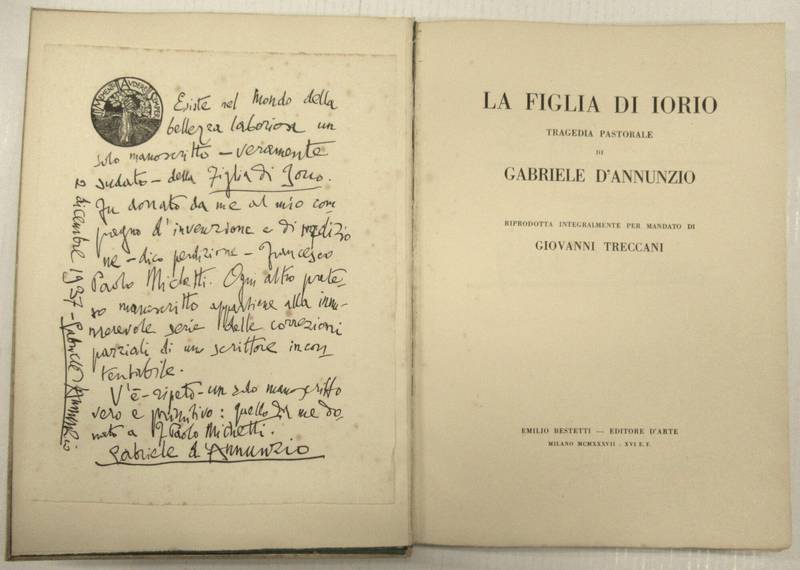 MEMENTO AUDERE SEMPER
Esiste nel Mondo della
bellezza laboriosa un
solo manoscritto – veramente
sudato – della Figlia di Iorio.
Fu donato da me al mio com-
pagno d'invenzione e di
ne – dico perdizione – Francesco
Paolo Michetti. Ogni altro prete-
so manoscritto appartiene alla innu-
merevole serie delle correzioni
parziali di un scrittore incon
tentabile.
V'è – ripeto – un solo manoscritto
vero e primitivo: quello da me do-
nato a F. Paolo Michetti.
Gabriele d'Annunzio
2 dicembre 1937 – Gabriele d'Annunzio
LA FIGLIA DI IORIO
TRAGEDIA PASTORALE
DI
GABRIELE D'ANNUNZIO
RIPRODOTTA INTEGRALMENTE PER MANDATO DI
GIOVANNI TRECCANI
EMILIO BESTETTI — EDITORE D'ARTE
MILANO MCMXXXVII - XVI E. F.